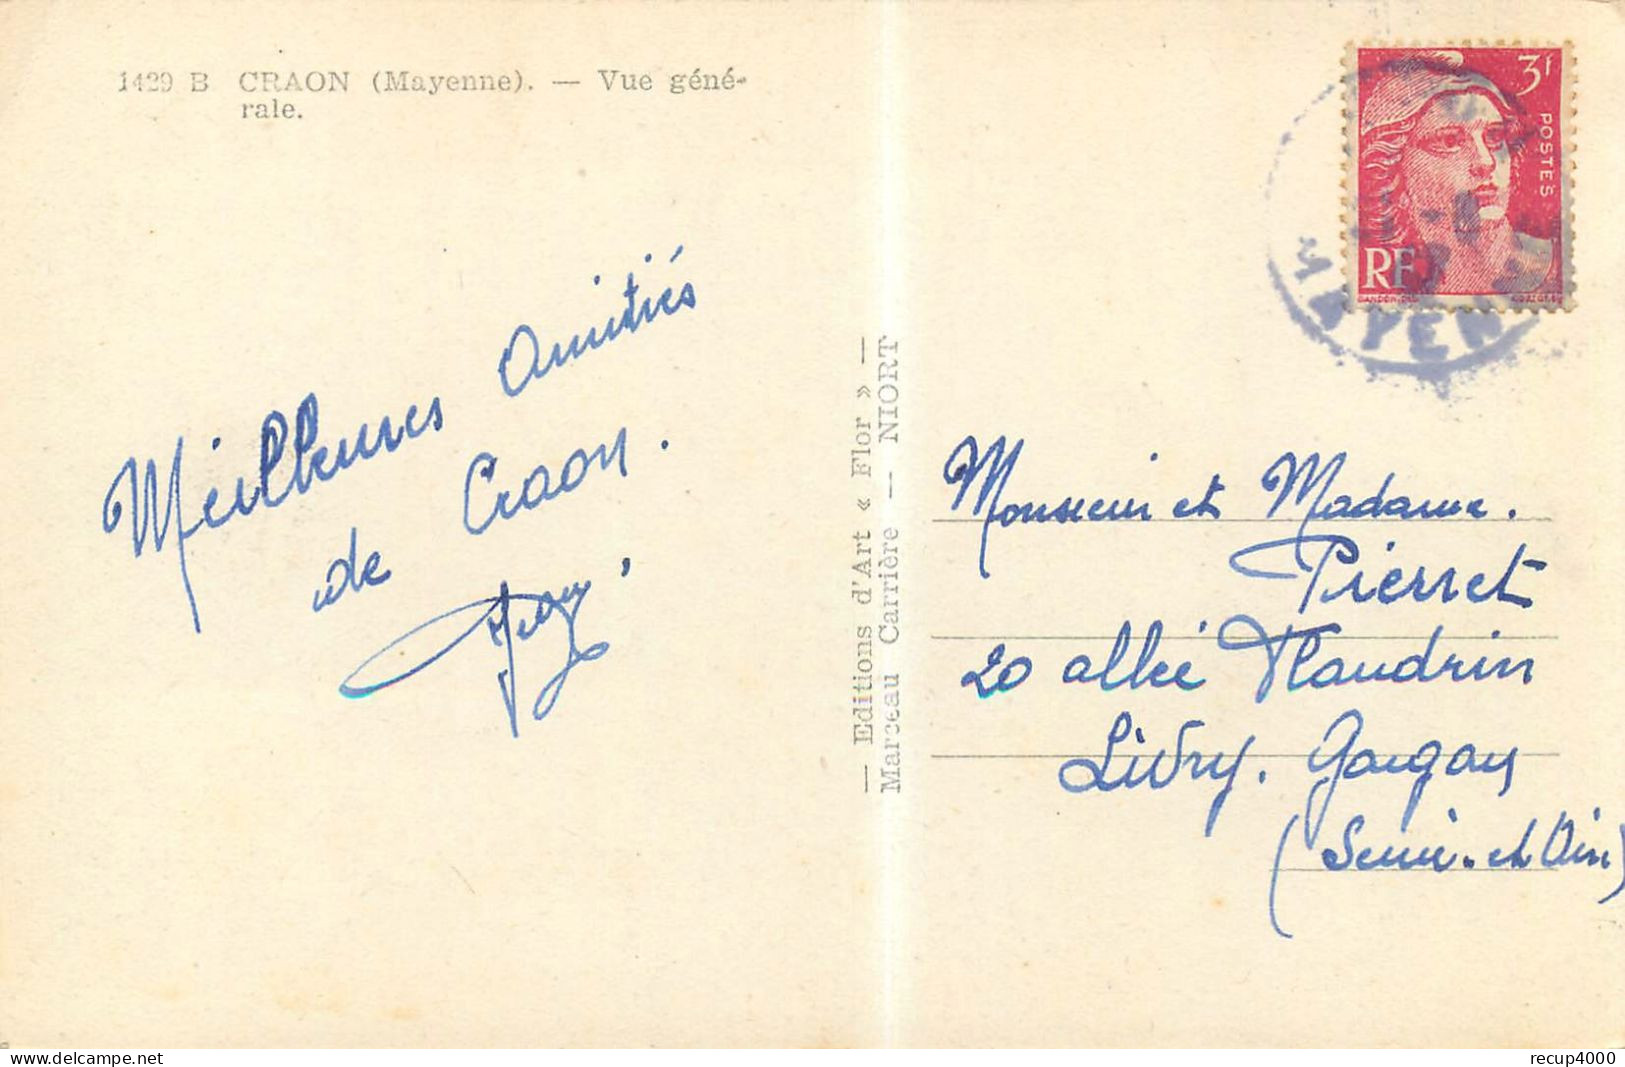 1429 B CRAON (Mayenne). — Vue géné-
rale.
Meilleures Amitiés
de Craon.
— Editions d'Art « Flor » —
Marceau Carrière — NIORT
3f
POSTES
RF
MAYENNE
Monsieur et Madame.
Pierret
20 allée Flandrin
Livry. Gargan
(Seine-et-Oise)
recup4000